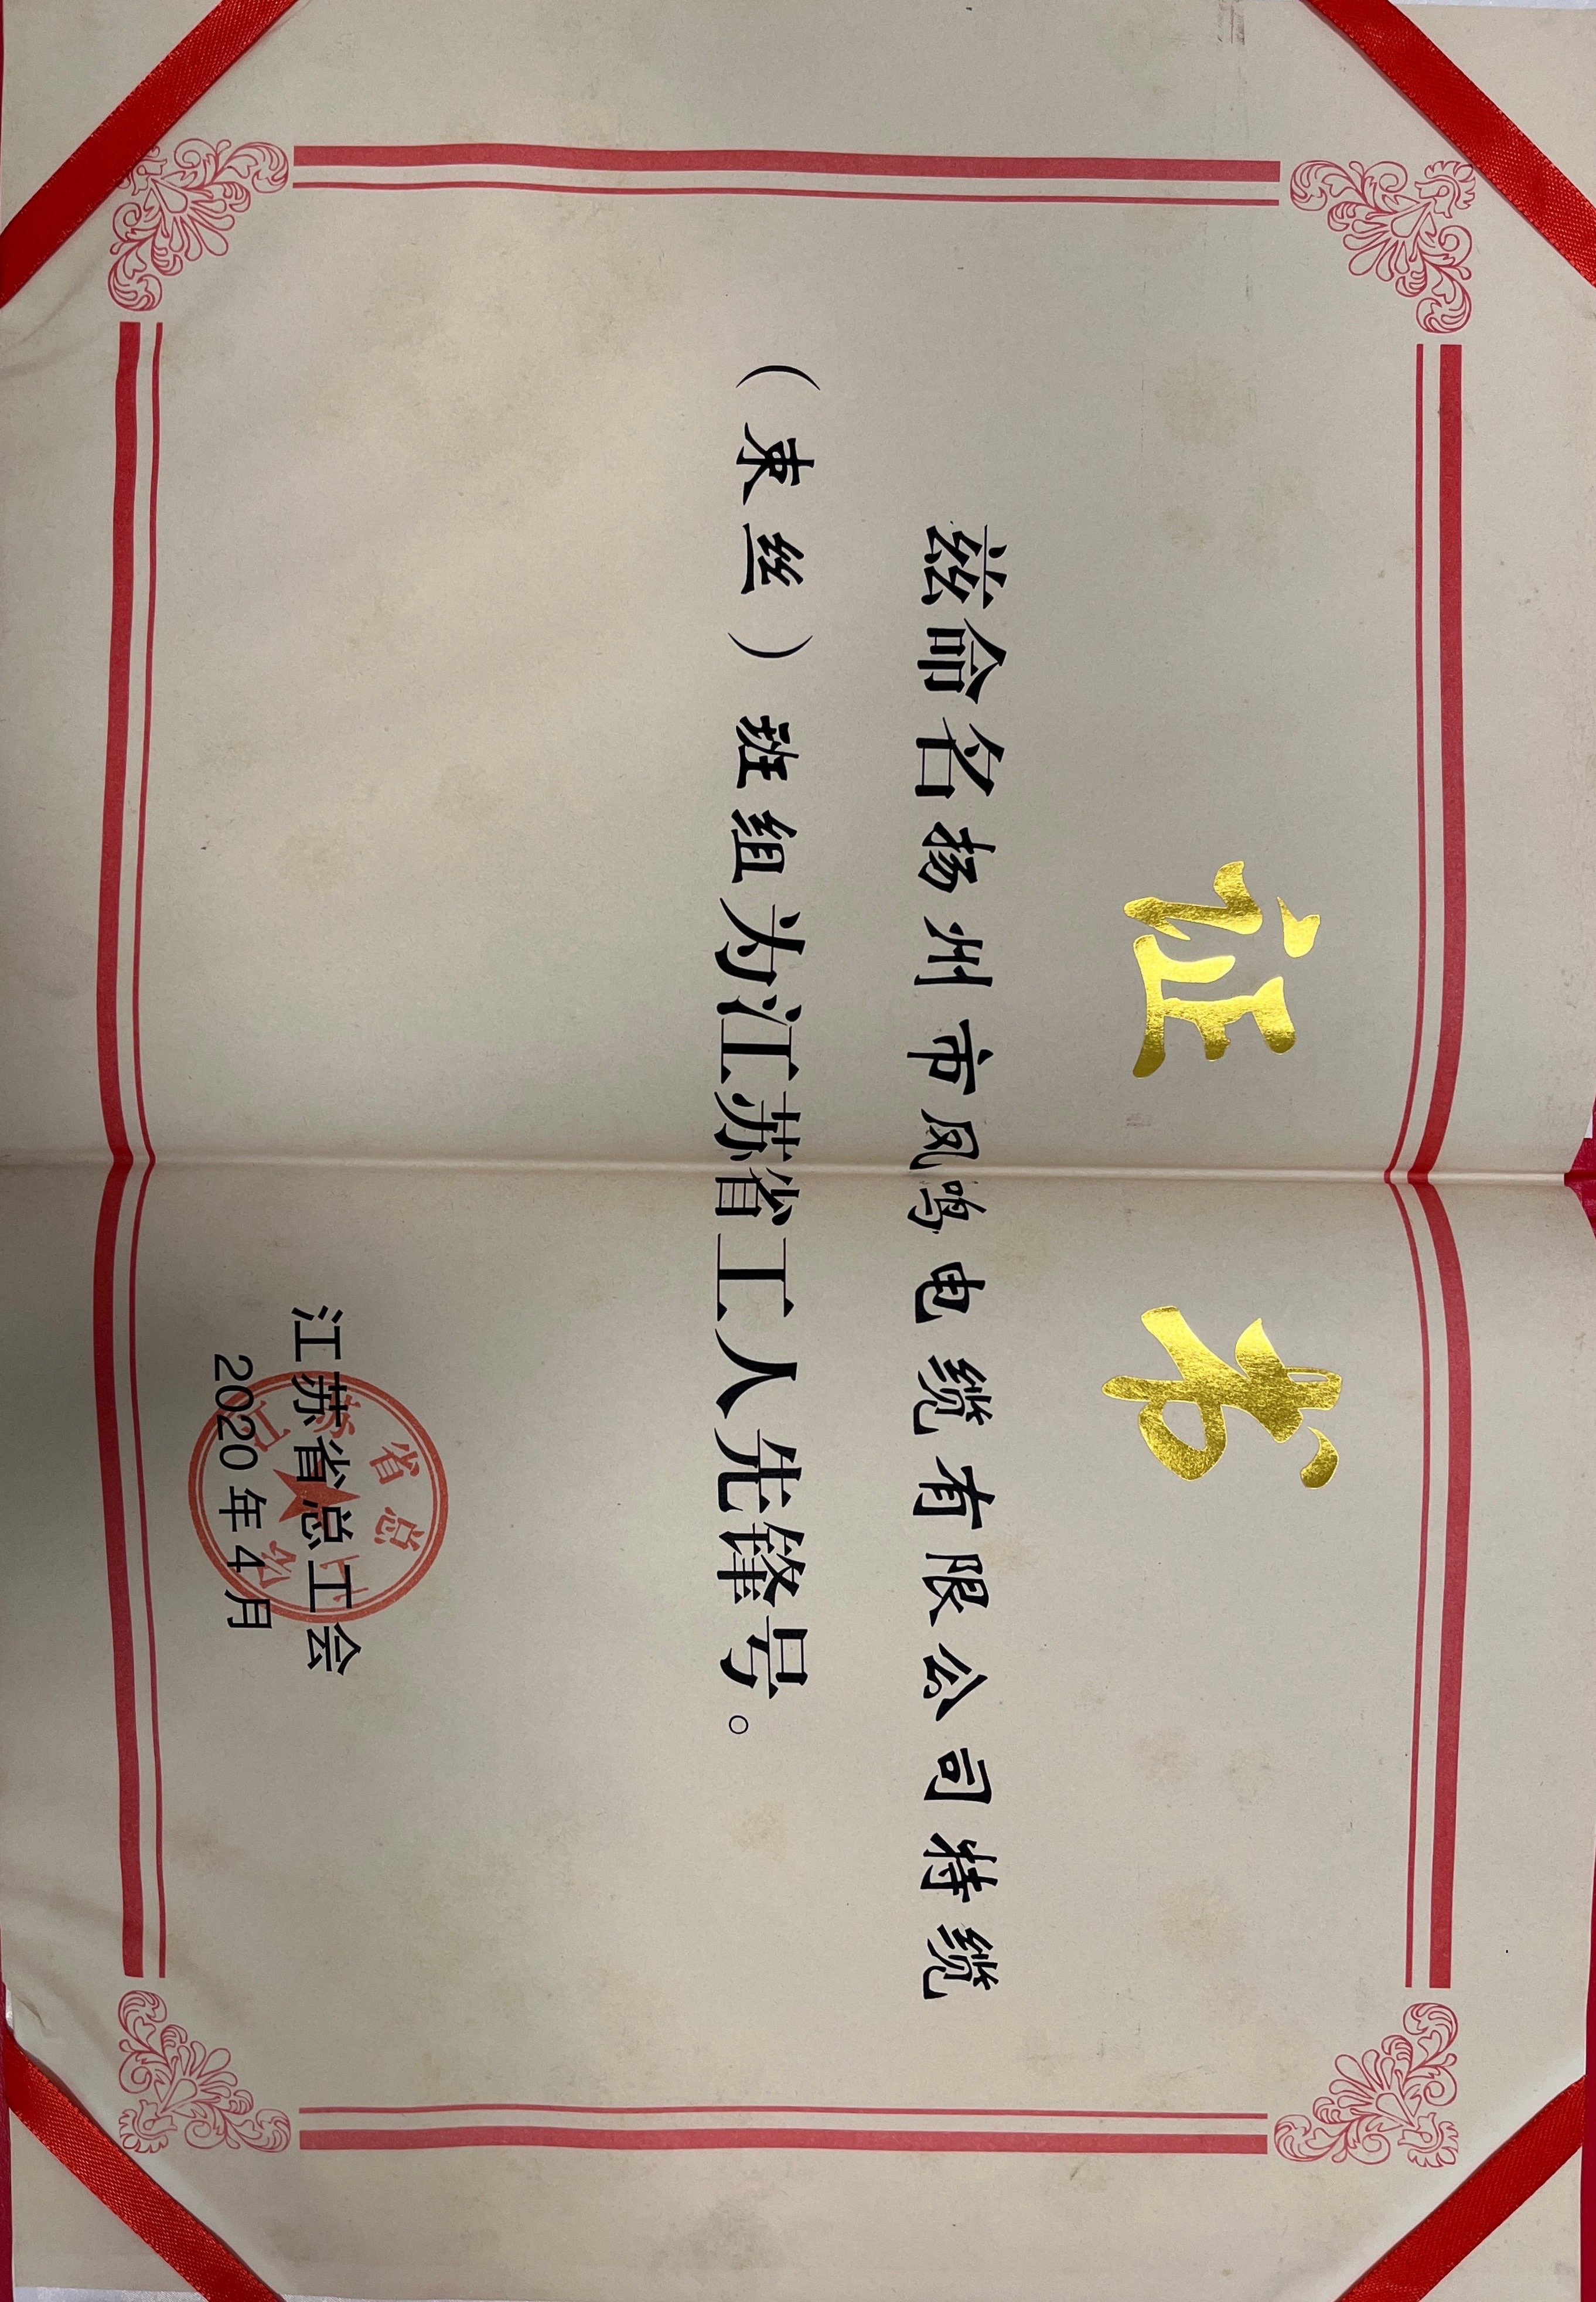 证书
兹命名扬州市凤鸣电缆有限公司特缆
（束丝）班组为江苏省工人先锋号。
江苏省总工会
2020年4月
江苏省总工会